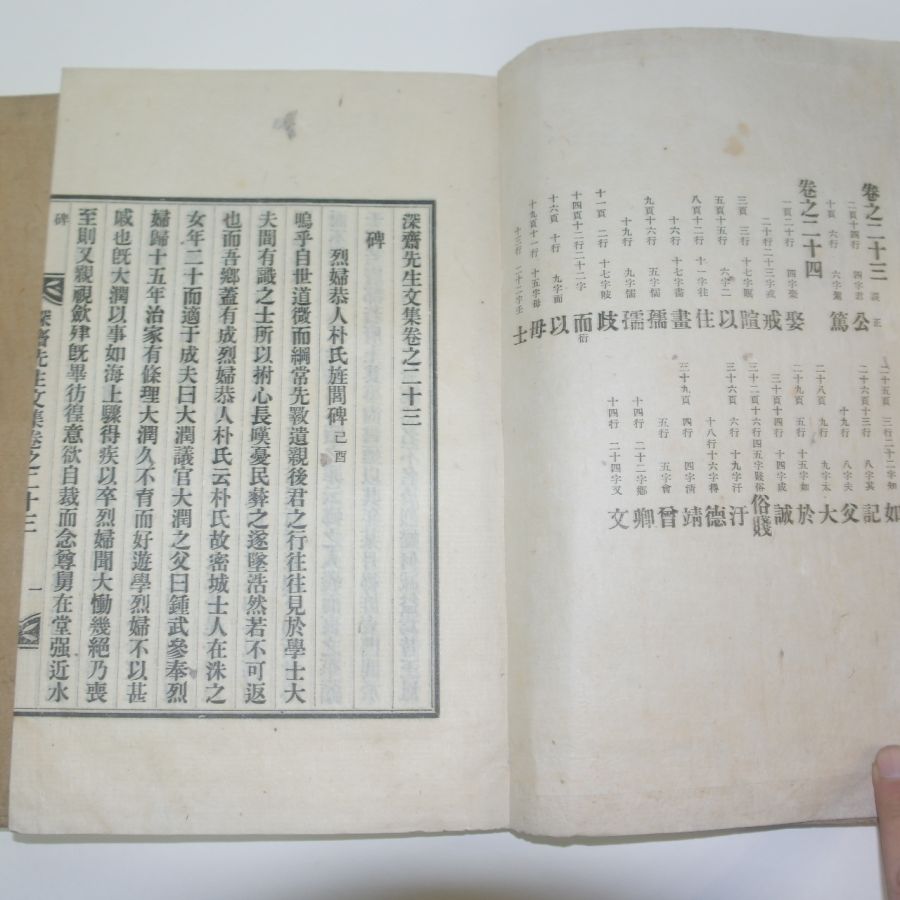 卷之二十三 誤 正
二頁十四行 六字君 公
十頁 六行 篤
卷之二十四
一頁二十行 四字 娶
二十行二十三字戎 戒
三頁 三行 暄
五頁十五行 六字二 以
八頁十二行 十一字往 住
十六行 十七字 畫
九頁十六行 五字懦 孺
十九行 九字懦 孺
十一頁 二行 十七字 歧
十四頁十二行二十二字 而衍
十六頁 一行 九字而 以
十九頁十一行 五字母 毋
十三行 二十二字壬 士
二十五頁 三行二十二字知 如
二十六頁 三行 八字其 記
十九行 八字夫 父
二十八頁 九行 九字太 大
二十九頁 六行 五字如 於
三十頁 四行 十四字成 誠
三十二頁十六行四五字賤俗 俗賤
三十六頁 六行 十九字汗 汙
十八行十六字得 德
三十九頁 四行 四字清 靖
五行 五字會 曾
十四行 二十二字鄕 卿
十四行 二十四字又 文
深齋先生文集卷之二十三
碑
烈婦恭人朴氏旌閭碑 己酉
嗚乎自世道微而綱常先斁遺親後君之行往往見於學士大
夫間有識之士所以拊心長嘆憂民彝之遂墜浩然若不可返
也而吾鄕蓋有成烈婦恭人朴氏云朴氏故密城士人在洙之
女年二十而適于成夫曰大潤議官大潤之父曰鍾武參奉烈
婦歸十五年治家有條理大潤久不育而好遊學烈婦不以甚
慼也旣大潤以事如海上驟得疾以卒烈婦聞大慟幾絕乃喪
至則又親視斂殮旣畢彷徨意欲自裁而念尊舅在堂强近水
碑
深齋先生文集卷之二十三
一